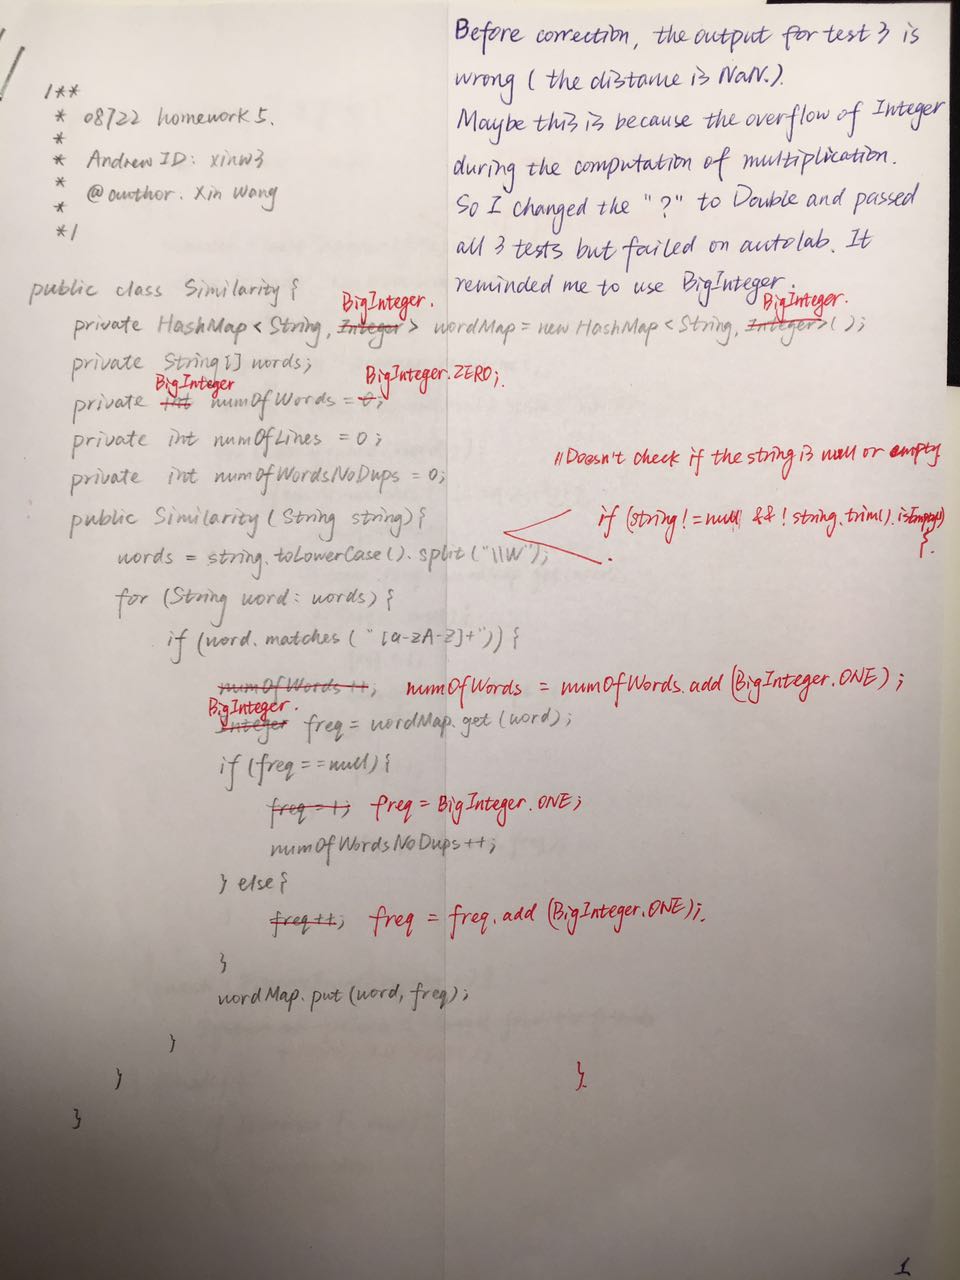 Before correction, the output for test 3 is
wrong ( the distame is NaN.).
Maybe this is because the overflow of Integer
during the computation of multiplication.
So I changed the "?" to Double and passed
all 3 tests but failed on autolab. It
reminded me to use BigInteger.
/**
* 08722 homework 5.
*
* Andrew ID: xinw3
*
* @author. Xin Wang
*
*/
public class Similarity {
BigInteger. BigInteger.
private HashMap < String, Integer > wordMap = new HashMap < String, Integer>();
private String [] words;
BigInteger BigInteger.ZERO;
private int numOfWords = 0;
private int numOfLines = 0;
private int numOfWordsNoDups = 0;
//Doesn't check if the string is null or empty
public Similarity ( String string) {
if (string != null && ! string.trim().isEmpty()
{.
words = string.toLowerCase().split("\\W");
for (String word : words) {
if (word.matches ( "[a-zA-Z]+")) {
numOfWords ++; numOfWords = numOfWords.add(BigInteger.ONE);
BigInteger.
Integer freq = wordMap.get (word);
if (freq == null) {
freq = 1; freq = BigInteger.ONE;
numOfWordsNoDups ++;
} else {
freq ++; freq = freq.add (BigInteger.ONE);
}
wordMap.put (word, freq);
}
} }
}
1